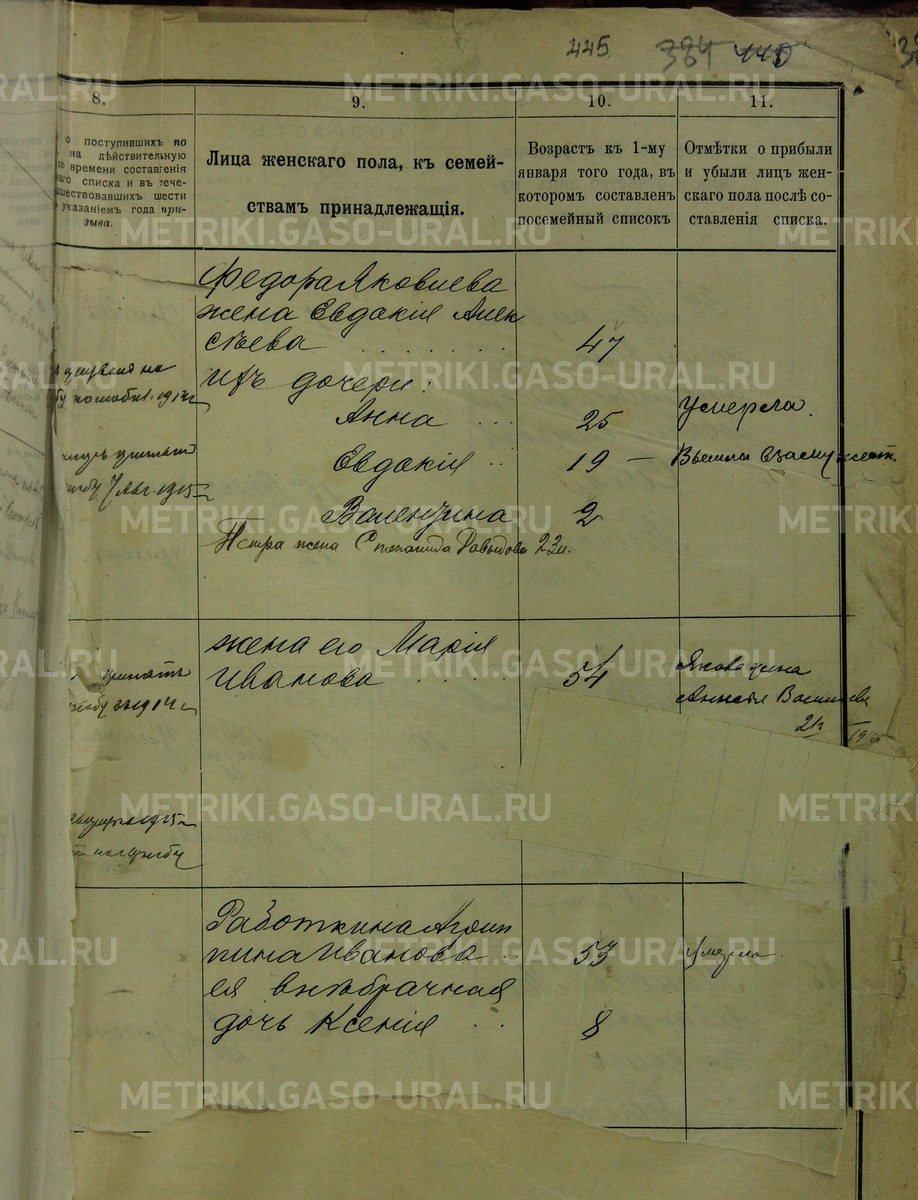 445 384 445
8.
о поступившихъ по
на дѣйствительную
со времени составленія
списка и въ тече-
шествовавшихъ шести
указаніемъ года при-
зыва.
9.
Лица женскаго пола, къ семей-
ствамъ принадлежащія.
10.
Возрастъ къ 1-му
января того года, въ
которомъ составленъ
посемейный списокъ
11.
Отмѣтки о прибыли
и убыли лицъ жен-
скаго пола послѣ со-
ставленія списка.
Федора Яковлева
жена Евдакія Алек
сѣева 47
ихъ дочери:
Анна 25 Умерла.
Евдакія 19 —
Валентина 2
Петра жена Степанида Давыдова 23 л.
1914 г
7 Авг. 1915 г
жена его Марія
Иванова 54
Якова жена
1914 г
1915 г
на службу
Работкина Агрип
пина Иванова 53 Умерла
ея внѣбрачная
дочь Ксенія 8
METRIKI.GASO-URAL.RU